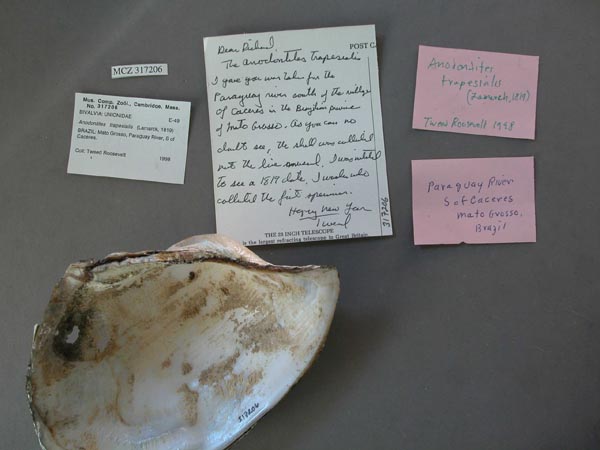 MCZ 317206
Mus. Comp. Zoöl., Cambridge, Mass.
No. 317206
BIVALVIA: UNIONIDAE E-49
Anodontites trapesialis (Lamarck, 1819)
BRAZIL, Mato Grosso, Paraguay River, S of
Caceres.
Coll: Tweed Roosevelt 1998
POST C
Dear Richard,
The Anodontites trapesialis
I gave you was taken from the
Paraguay river south of the village
of Caceres in the Brazilian province
of Mato Grosso. As you can no
doubt see, the shell was collected
with the live animal. I was
to see a 1819 date. I wonder who
collected the first specimen.
Happy New Year
Tweed
THE 23 INCH TELESCOPE
is the largest refracting telescope in Great Britain.
317206
Anodontites
trapesialis
(Lamarck, 1819)
Tweed Roosevelt 1998
Paraguay River
S of Caceres
Mato Grosso,
Brazil
317206